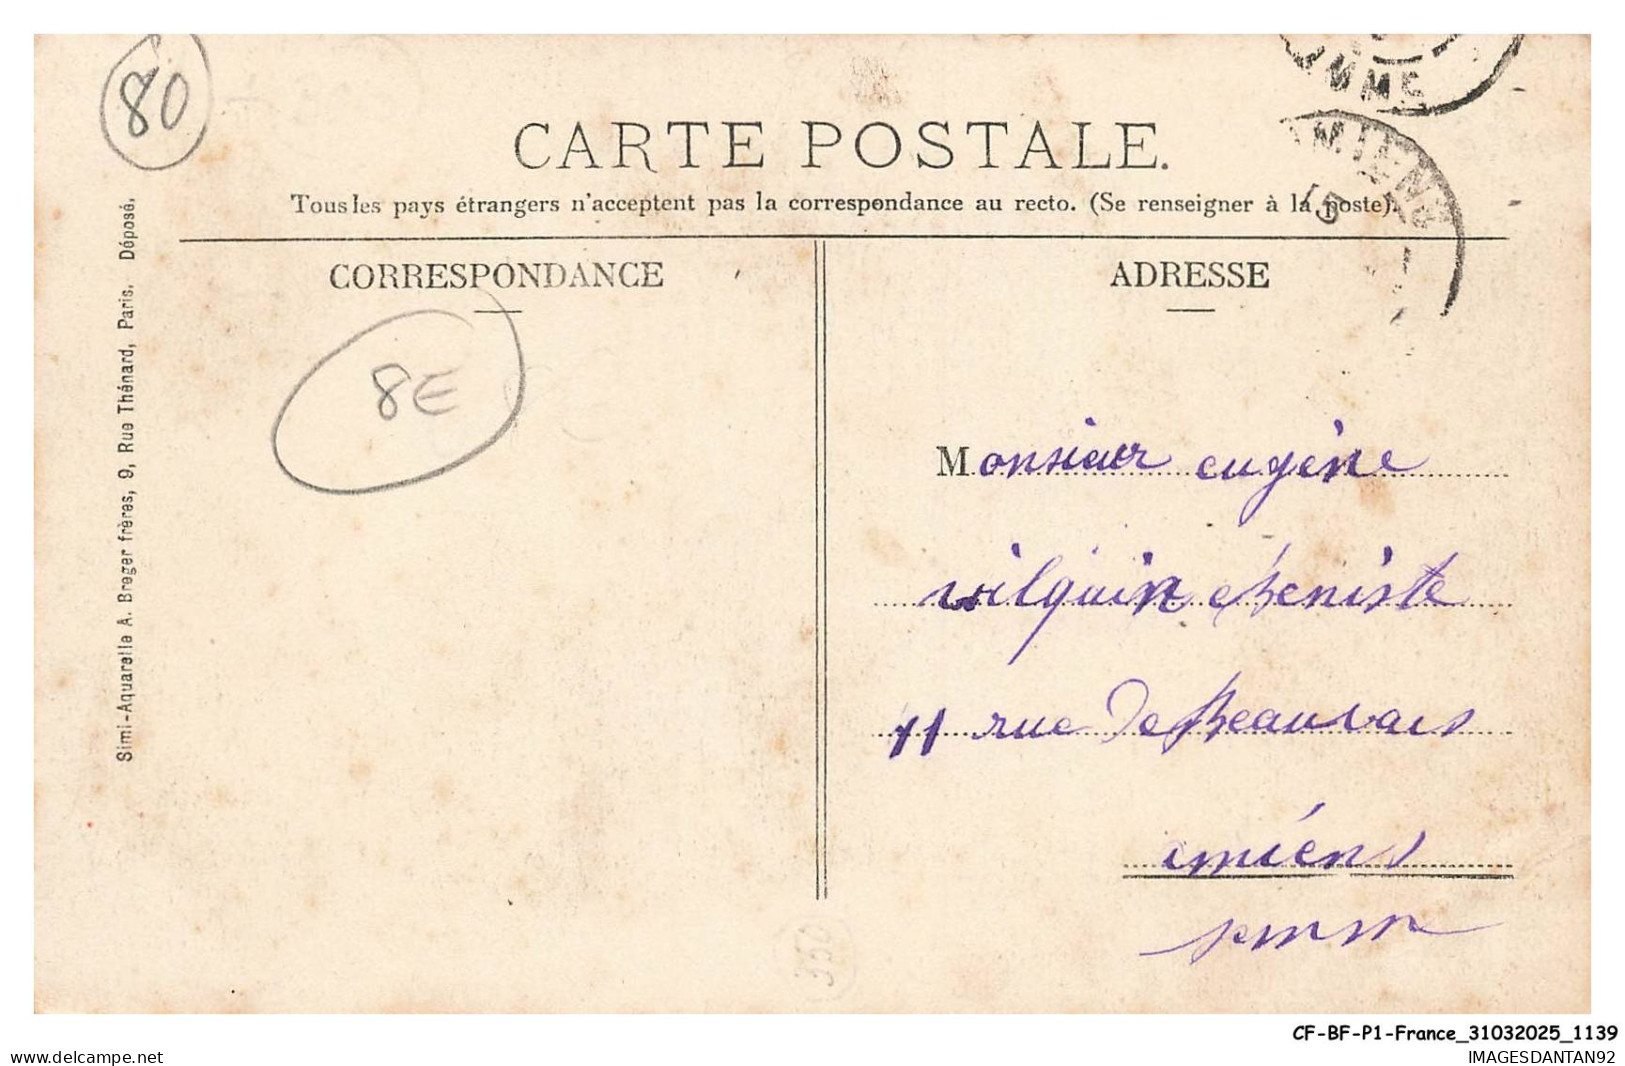 80
CARTE POSTALE.
Tous les pays étrangers n'acceptent pas la correspondance au recto. (Se renseigner à la poste).
CORRESPONDANCE
ADRESSE
8E
Simi-Aquarelle A. Breger frères, 9, Rue Thénard, Paris. Déposé.
AMIENS
15
Monsieur eugène
vilquin ebeniste
11 rue de Beauvais
amiéns
somm
350
CF-BF-P1-France_31032025_1139
delcampe.net
IMAGESDANTAN92